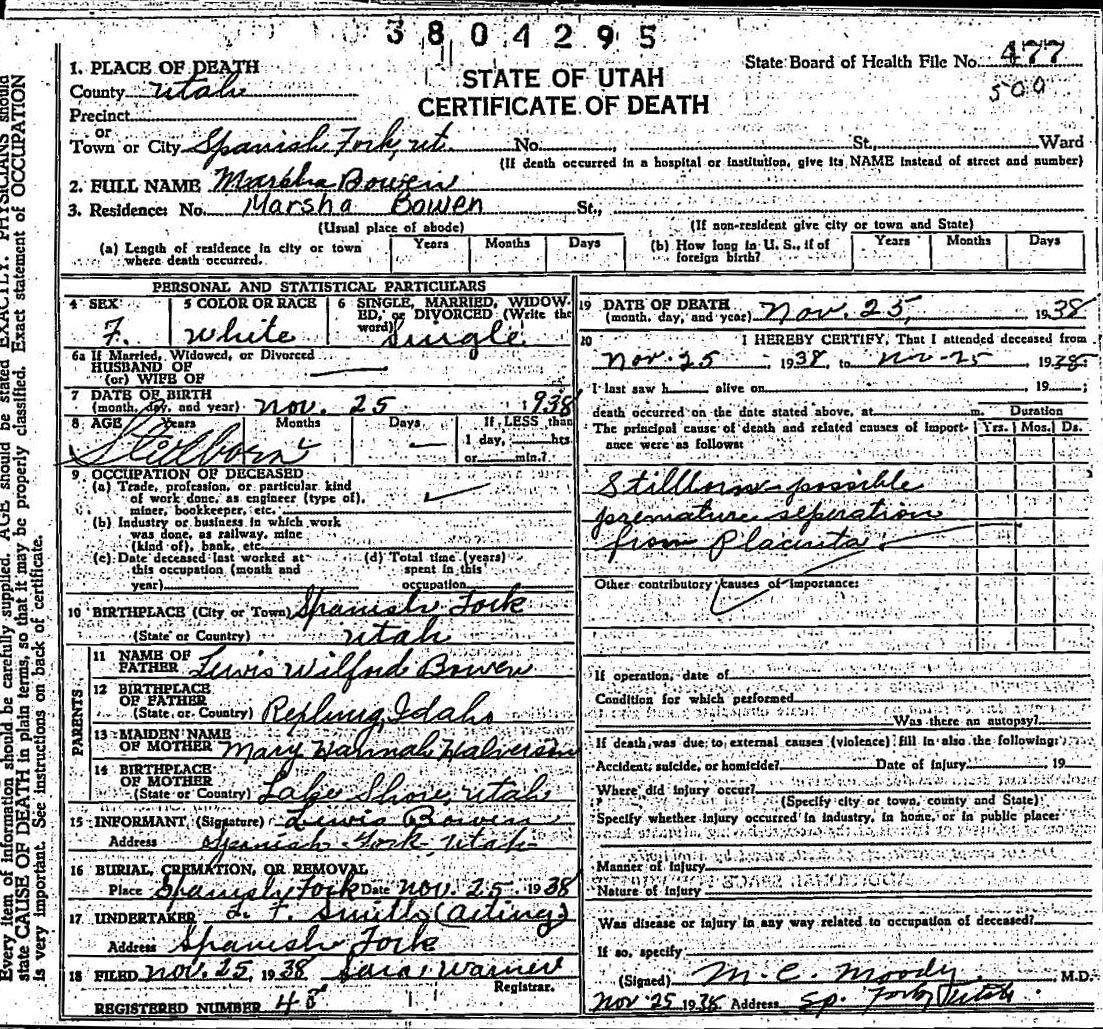 3804295
State Board of Health File No. 477
500
STATE OF UTAH
CERTIFICATE OF DEATH
1. PLACE OF DEATH
County Utah
Precinct
or
Town or City Spanish Fork, Ut. No. St., Ward
(If death occurred in a hospital or institution, give its NAME instead of street and number)
2. FULL NAME Marsha Bowen
3. Residence: No. Marsha Bowen St.,
(Usual place of abode) (If non-resident give city or town and State)
(a) Length of residence in city or town where death occurred. Years Months Days
(b) How long in U. S., if of foreign birth? Years Months Days
PERSONAL AND STATISTICAL PARTICULARS
4 SEX F.
5 COLOR OR RACE White
6 SINGLE, MARRIED, WIDOWED, or DIVORCED (Write the word) Single
6a If Married, Widowed, or Divorced
HUSBAND OF
(or) WIFE OF
7 DATE OF BIRTH
(month, day, and year) Nov. 25 1938
8 AGE Years Months Days If LESS than
1 day, hrs.
or min.?
Stillborn
9 OCCUPATION OF DECEASED
(a) Trade, profession, or particular kind
of work done, as engineer (type of),
miner, bookkeeper, etc.
(b) Industry or business in which work
was done, as railway, mine
(kind of), bank, etc.
(c) Date deceased last worked at
this occupation (month and
year)
(d) Total time (years)
spent in this
occupation
10 BIRTHPLACE (City or Town) Spanish Fork
(State or Country) Utah
PARENTS
11 NAME OF
FATHER Lewis Wilford Bowen
12 BIRTHPLACE
OF FATHER
(State or Country) Idaho
13 MAIDEN NAME
OF MOTHER Mary Hannah Halverson
14 BIRTHPLACE
OF MOTHER
(State or Country) Lake Shore, Utah
15 INFORMANT (Signature) Lewis Bowen
Address Spanish Fork, Utah
16 BURIAL, CREMATION, OR REMOVAL
Place Spanish Fork Date Nov. 25. 1938
17 UNDERTAKER L. F. Smith (Acting)
Address Spanish Fork
18 FILED Nov. 25, 1938 Warner
Registrar.
REGISTERED NUMBER
19 DATE OF DEATH
(month, day, and year) Nov. 25, 1938
20 I HEREBY CERTIFY, That I attended deceased from
Nov. 25, 1938, to Nov-25 1938
I last saw h alive on 19 ;
death occurred on the date stated above, at m. Duration
The principal cause of death and related causes of importance were as follows: Yrs. Mos. Ds.
Stillborn possible
premature seperation
from Placenta.
Other contributory causes of importance:
If operation, date of
Condition for which performed
Was there an autopsy?
If death was due to external causes (violence) fill in also the following:
Accident, suicide, or homicide? Date of injury 19
Where did injury occur?
(Specify city or town, county and State)
Specify whether injury occurred in industry, in home, or in public place:
Manner of injury
Nature of injury
Was disease or injury in any way related to occupation of deceased?
If so, specify
(Signed) M. C. Moody M.D.
Nov 25 1938 Address Sp. Fork, Utah.
Every item of information should be carefully supplied. AGE should be stated EXACTLY. PHYSICIANS should
state CAUSE OF DEATH in plain terms, so that it may be properly classified. Exact statement of OCCUPATION
is very important. See instructions on back of certificate.